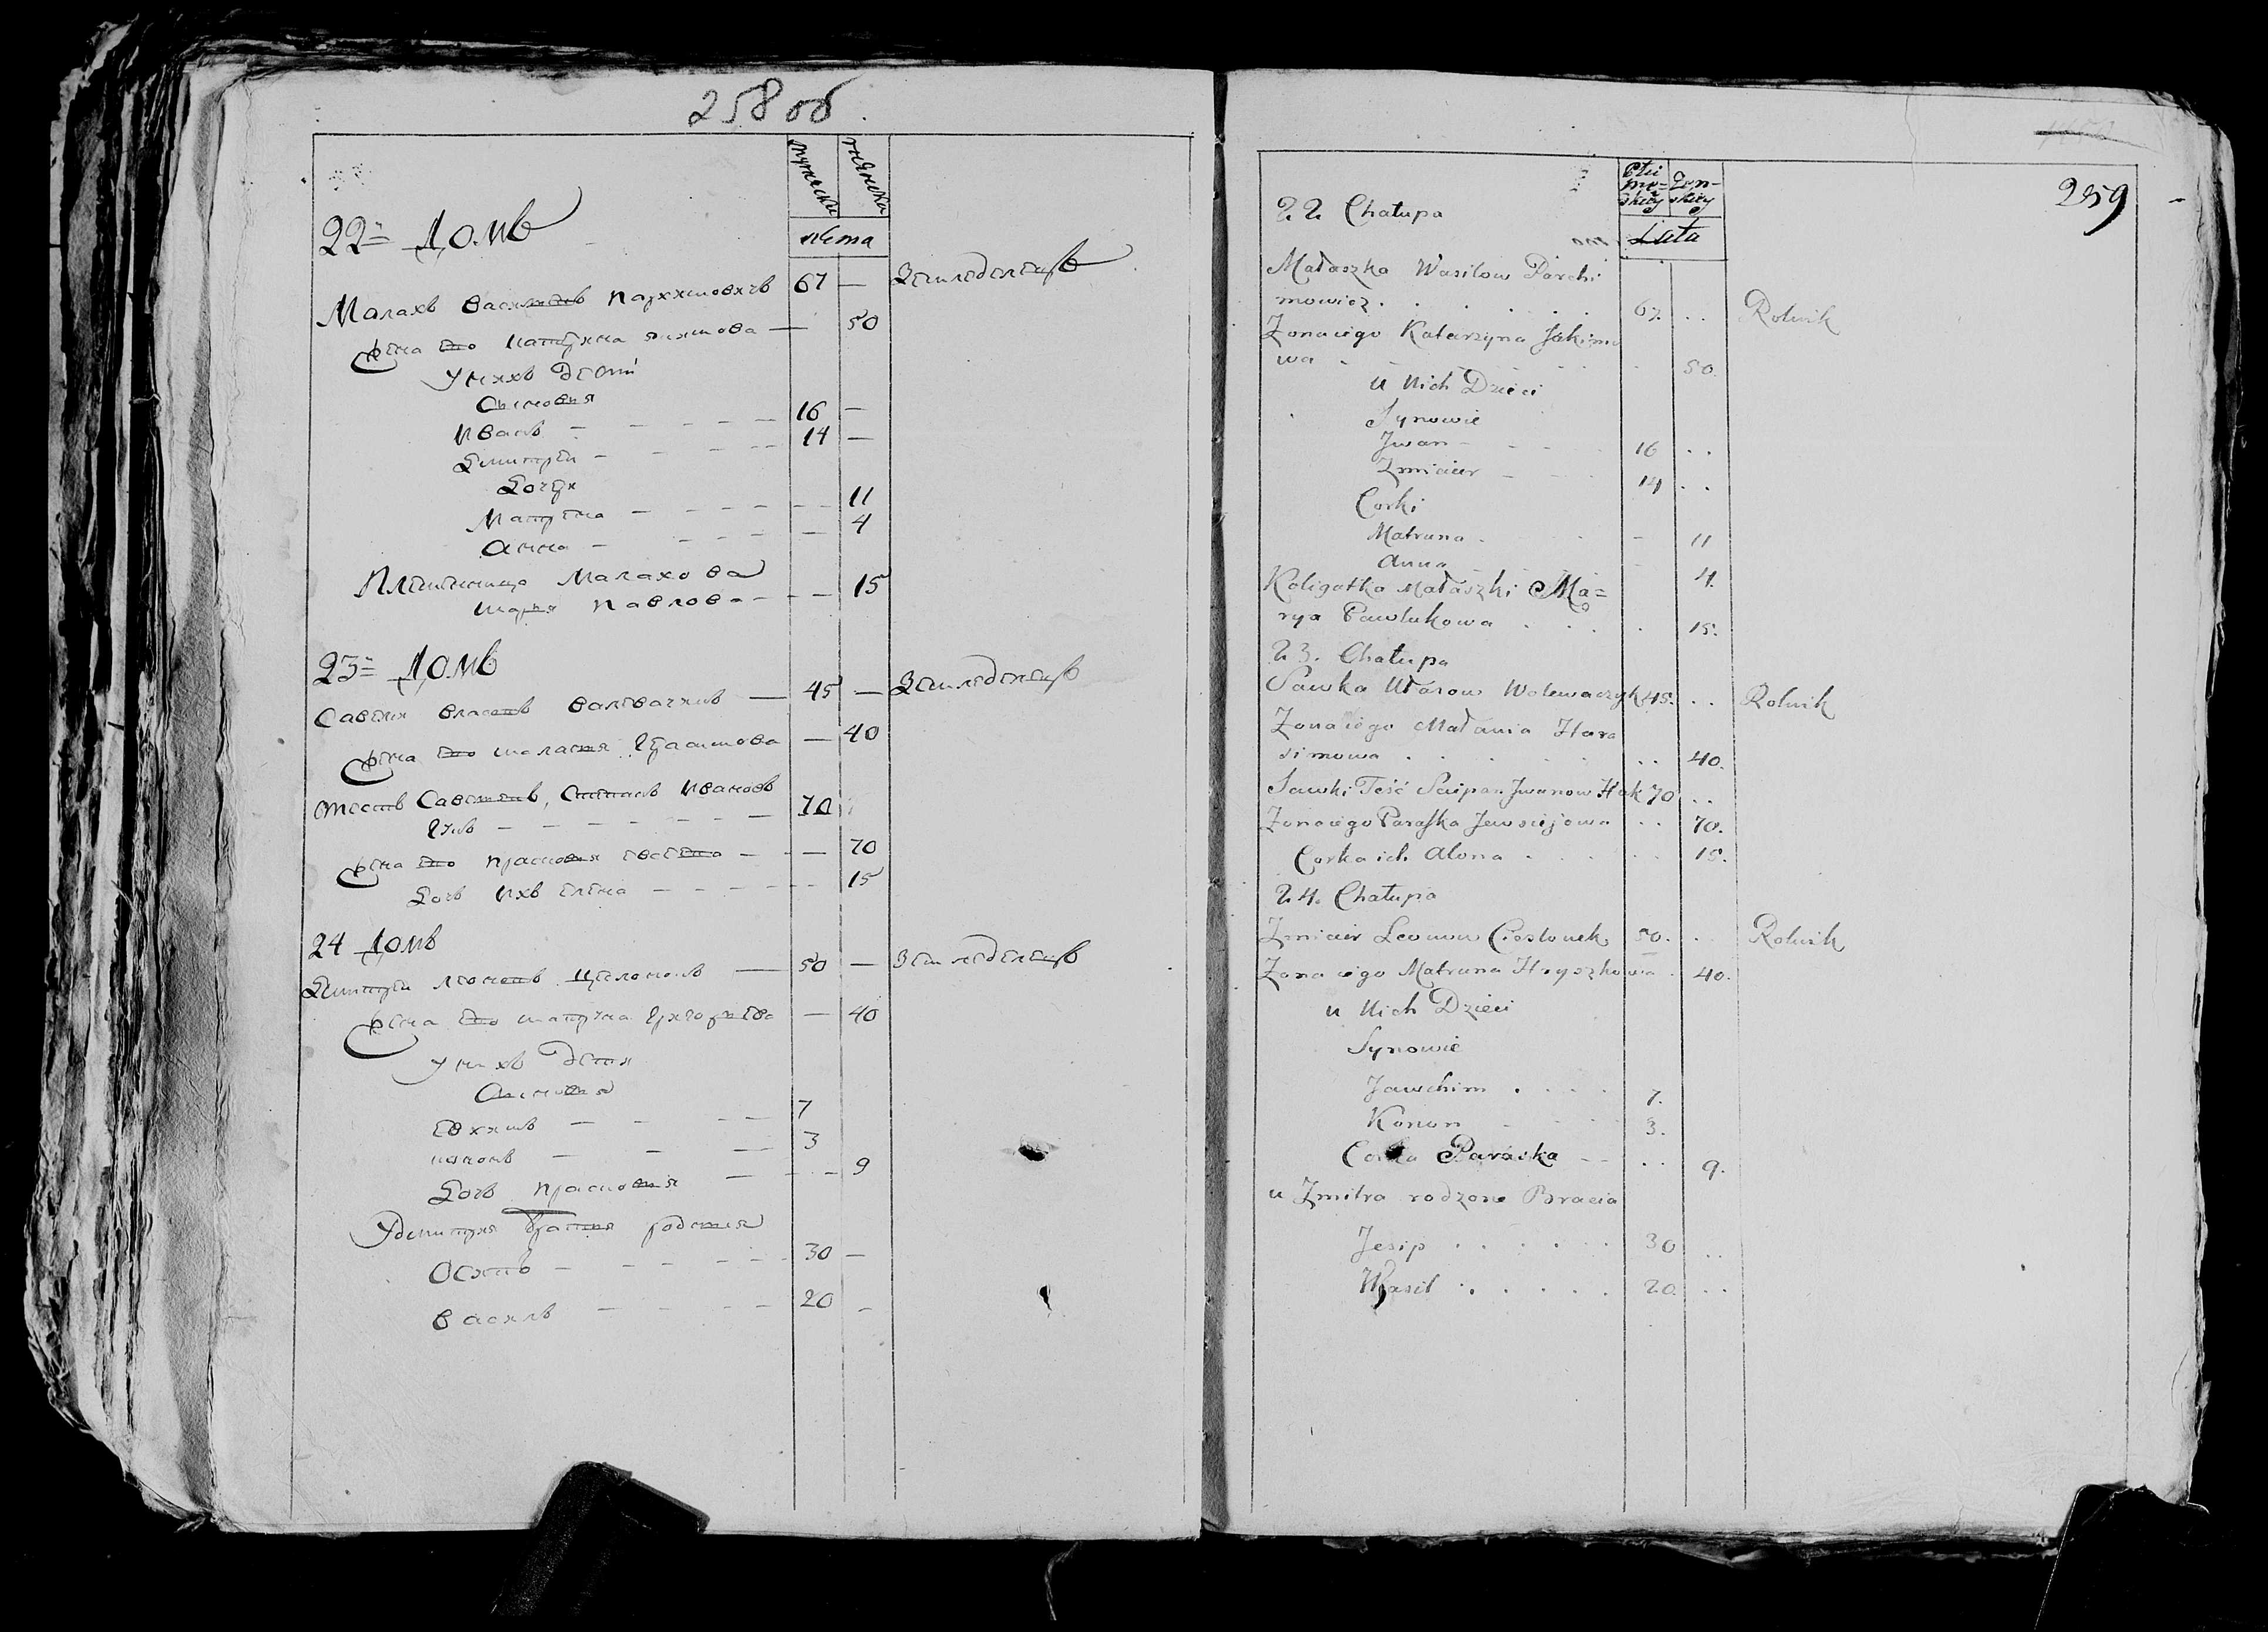 258 об.
мужеска
женска
лета
22й Домъ
Малахъ Васильевъ Пархимовичъ 67 — Земледелецъ
Жена его Катерина Якимова — 50
У нихъ Дети
Сыновья
Иванъ — — — — 16 —
Дмитрей — — — — 14 —
Дочери
Матрена — — — — 11
Анна — — — — 4
Племенница Малахова
Марья Павлова — — — 15
23й Домъ
Савелей Власовъ Валевачикъ — 45 — Земледелецъ
Жена его Маланья Герасимова — 40
Тесть Савельевъ, Степанъ Ивановъ
— — — — — — 70
Жена его Прасковья — — — 70
Дочь ихъ Елена — — — — 15
24 Домъ
Дмитрей Леоновъ — 50 — Земледелецъ
Жена его Матрена Григорьева — 40
У нихъ дети
Сыновья
Евхимъ — — — 7
Кононъ — — — 3
Дочь Прасковья — — — 9
У Дмитрея братья родные
Осипъ — — — — 30 —
Василь — — — — 20 —
259
Płci
mę=
skiey
Żeń-
skiey
Lata
22 Chałupa
Małaszka Wasilow Parchi
mowicz . . . . . 67. .. Rolnik
Zona iego Katarzyna Jakimo
wa . . . . . 50.
u Nich Dzieci
Synowie
Jwan - - - 16 ..
Zmicier - - - 14 ..
Corki
Matruna . . - 11
Anna - 4.
Koligatka Małaszki Ma=
rya Pawlukowa . . . . 15.
23. Chałupa
Sawka Ułasow Wolewaczyk 45. .. Rolnik
Zona iego Małania Hara
simowa . . . . . .. 40.
Sawki Teść Sciepan Jwanow Hak 70 ..
Zona iego Paraska Jewsiejowa .. 70.
Corka ich Alona . . . . 15.
24. Chałupa
Zmicier Leonow Cieslonek 50. . Rolnik
Zona iego Matruna Hryszkowa . 40.
u Nich Dzieci
Synowie
Jawchim . . . . 7.
Konon . . . 3.
Corka Paraska - - .. 9.
u Zmitra rodzone Bracia
Jesip . . . . . . 30 ..
Wasil . . . . . . 20. ..